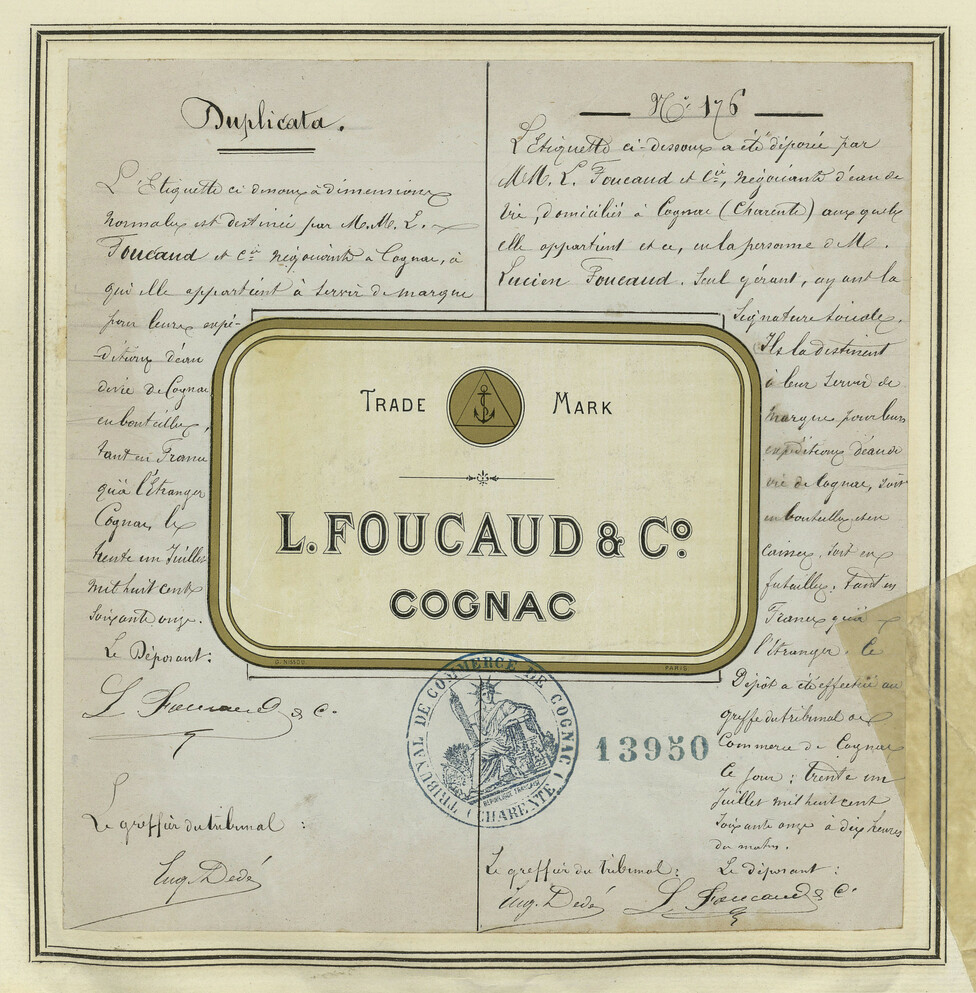 Duplicata.
L'Etiquette ci dessous à dimensions
normales est destinée par M.M. L.
Foucaud et Cie négociants à Cognac, à
qui elle appartient à servir de marque
pour leurs expé-
-ditions d'eau
de vie de Cognac
en bouteilles,
tant en France
qu'à l'Etranger
Cognac, le
trente un Juillet
mil huit cent
soixante onze.
Le Déposant:
L Foucaud & C.
Le greffier du tribunal :
Eug. Dedé
N° 176
L'Etiquette ci-dessous a été déposée par
MM. L. Foucaud et Cie, négociants d'eau de
vie, domiciliés à Cognac (Charente) auxquels
elle appartient et ce, en la personne de M.
Lucien Foucaud. Seul gérant, ayant la
signature sociale.
Ils la destinent
à leur servir de
marque pour leurs
expéditions d'eau de
vie de Cognac, soit
en bouteilles et en
caisses, soit en
futailles, tant en
France qu'à
l'étranger. Le
Dépôt a été effectué au
greffe du tribunal de
Commerce de Cognac
Ce jour : trente un
Juillet mil huit cent
soixante onze à dix heures
du matin.
Le greffier du tribunal :
Eug. Dedé
Le déposant :
L Foucaud & C°
TRADE MARK
L. FOUCAUD & Co.
COGNAC
PARIS
TRIBUNAL DE COMMERCE DE COGNAC
(CHARENTE)
REPUBLIQUE FRANCAISE
13950